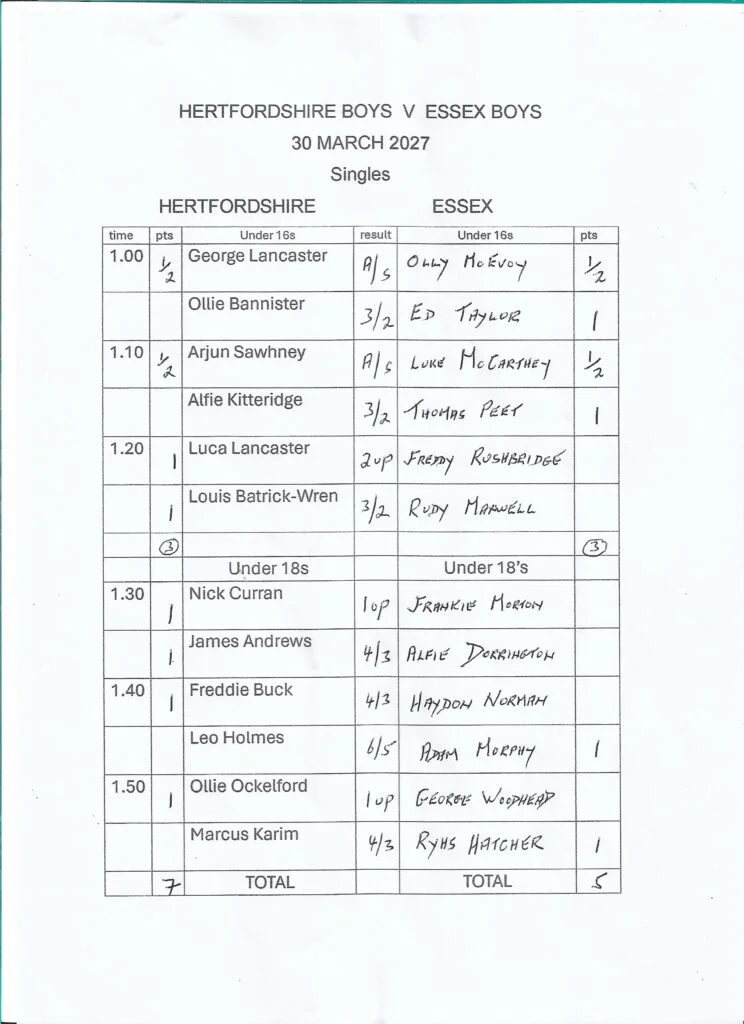 HERTFORDSHIRE BOYS V ESSEX BOYS
30 MARCH 2027
Singles
HERTFORDSHIRE ESSEX
time pts Under 16s result Under 16s pts
1.00 1/2 George Lancaster A/S OLLY McEVOY 1/2
Ollie Bannister 3/2 ED TAYLOR 1
1.10 1/2 Arjun Sawhney A/S LUKE McCARTHEY 1/2
Alfie Kitteridge 3/2 THOMAS PEET 1
1.20 1 Luca Lancaster 2up FREDDY RUSHBRIDGE
1 Louis Batrick-Wren 3/2 RUDY MAXWELL
3 3
Under 18s Under 18's
1.30 1 Nick Curran 1up FRANKIE MORTON
1 James Andrews 4/3 ALFIE DORRINGTON
1.40 1 Freddie Buck 4/3 HAYDON NORMAN
Leo Holmes 6/5 ADAM MURPHY 1
1.50 1 Ollie Ockelford 1up GEORGE WOODHEAD
Marcus Karim 4/3 RYHS HATCHER 1
7 TOTAL TOTAL 5